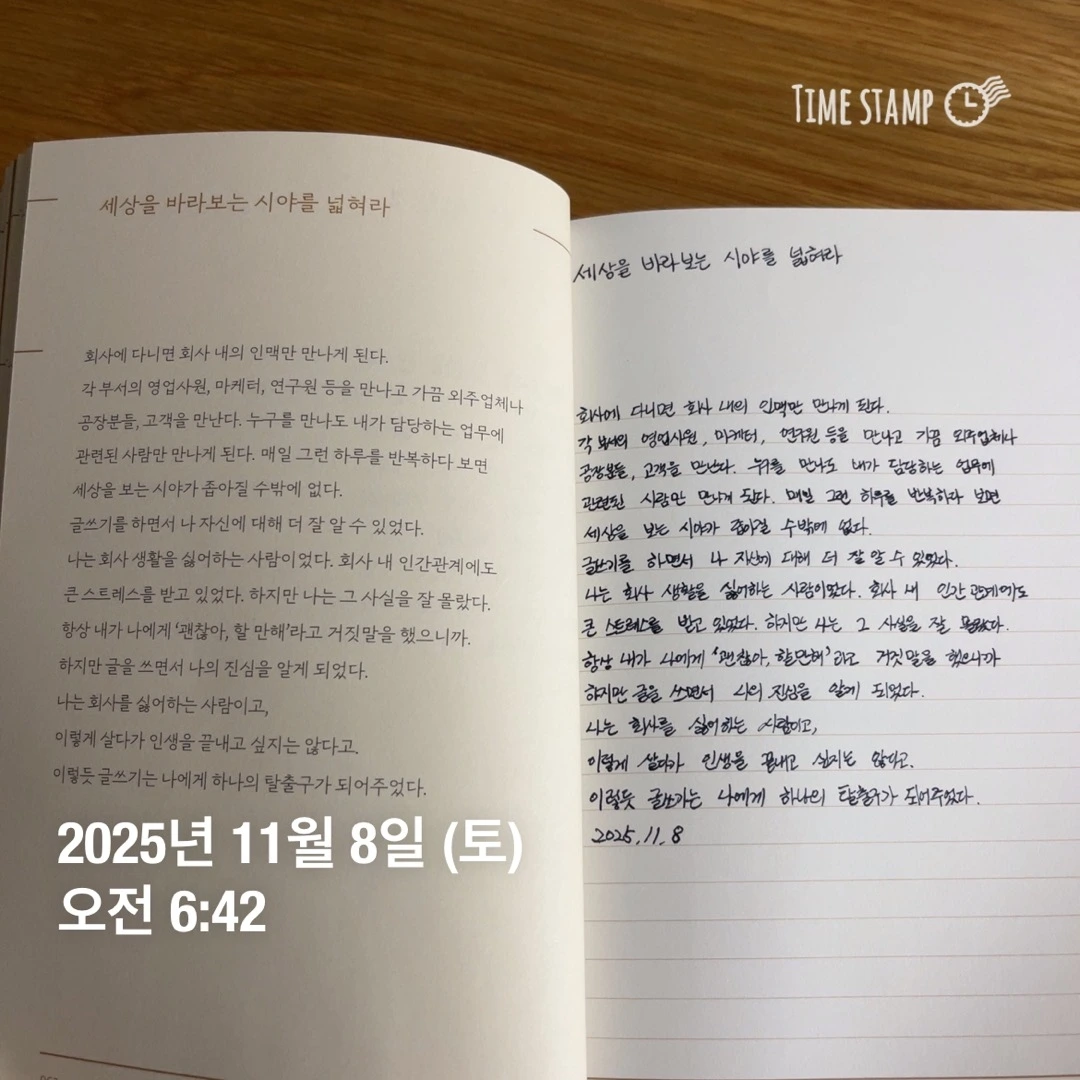 TIME STAMP
세상을 바라보는 시야를 넓혀라
회사에 다니면 회사 내의 인맥만 만나게 된다.
각 부서의 영업사원, 마케터, 연구원 등을 만나고 가끔 외주업체나
공장분들, 고객을 만난다. 누구를 만나도 내가 담당하는 업무에
관련된 사람만 만나게 된다. 매일 그런 하루를 반복하다 보면
세상을 보는 시야가 좁아질 수밖에 없다.
글쓰기를 하면서 나 자신에 대해 더 잘 알 수 있었다.
나는 회사 생활을 싫어하는 사람이었다. 회사 내 인간관계에도
큰 스트레스를 받고 있었다. 하지만 나는 그 사실을 잘 몰랐다.
항상 내가 나에게 ‘괜찮아, 할 만해’라고 거짓말을 했으니까.
하지만 글을 쓰면서 나의 진심을 알게 되었다.
나는 회사를 싫어하는 사람이고,
이렇게 살다가 인생을 끝내고 싶지는 않다고.
이렇듯 글쓰기는 나에게 하나의 탈출구가 되어주었다.
2025년 11월 8일 (토)
오전 6:42
세상을 바라보는 시야를 넓혀라
회사에 다니면 회사 내의 인맥만 만나게 된다.
각 부서의 영업사원, 마케터, 연구원 등을 만나고 가끔 외주업체나
공장분들, 고객을 만난다. 누구를 만나도 내가 담당하는 업무에
관련된 사람만 만나게 된다. 매일 그런 하루를 반복하다 보면
세상을 보는 시야가 좁아질 수밖에 없다.
글쓰기를 하면서 나 자신에 대해 더 잘 알 수 있었다.
나는 회사 생활을 싫어하는 사람이었다. 회사 내 인간관계에도
큰 스트레스를 받고 있었다. 하지만 나는 그 사실을 잘 몰랐다.
항상 내가 나에게 ‘괜찮아, 할만해’라고 거짓말을 했으니까
하지만 글을 쓰면서 나의 진심을 알게 되었다.
나는 회사를 싫어하는 사람이고,
이렇게 살다가 인생을 끝내고 싶지는 않다고.
이렇듯 글쓰기는 나에게 하나의 탈출구가 되어주었다.
2025.11.8